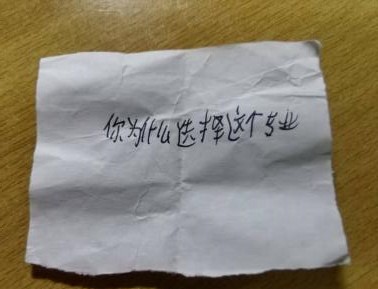 你为什么选择这个专业